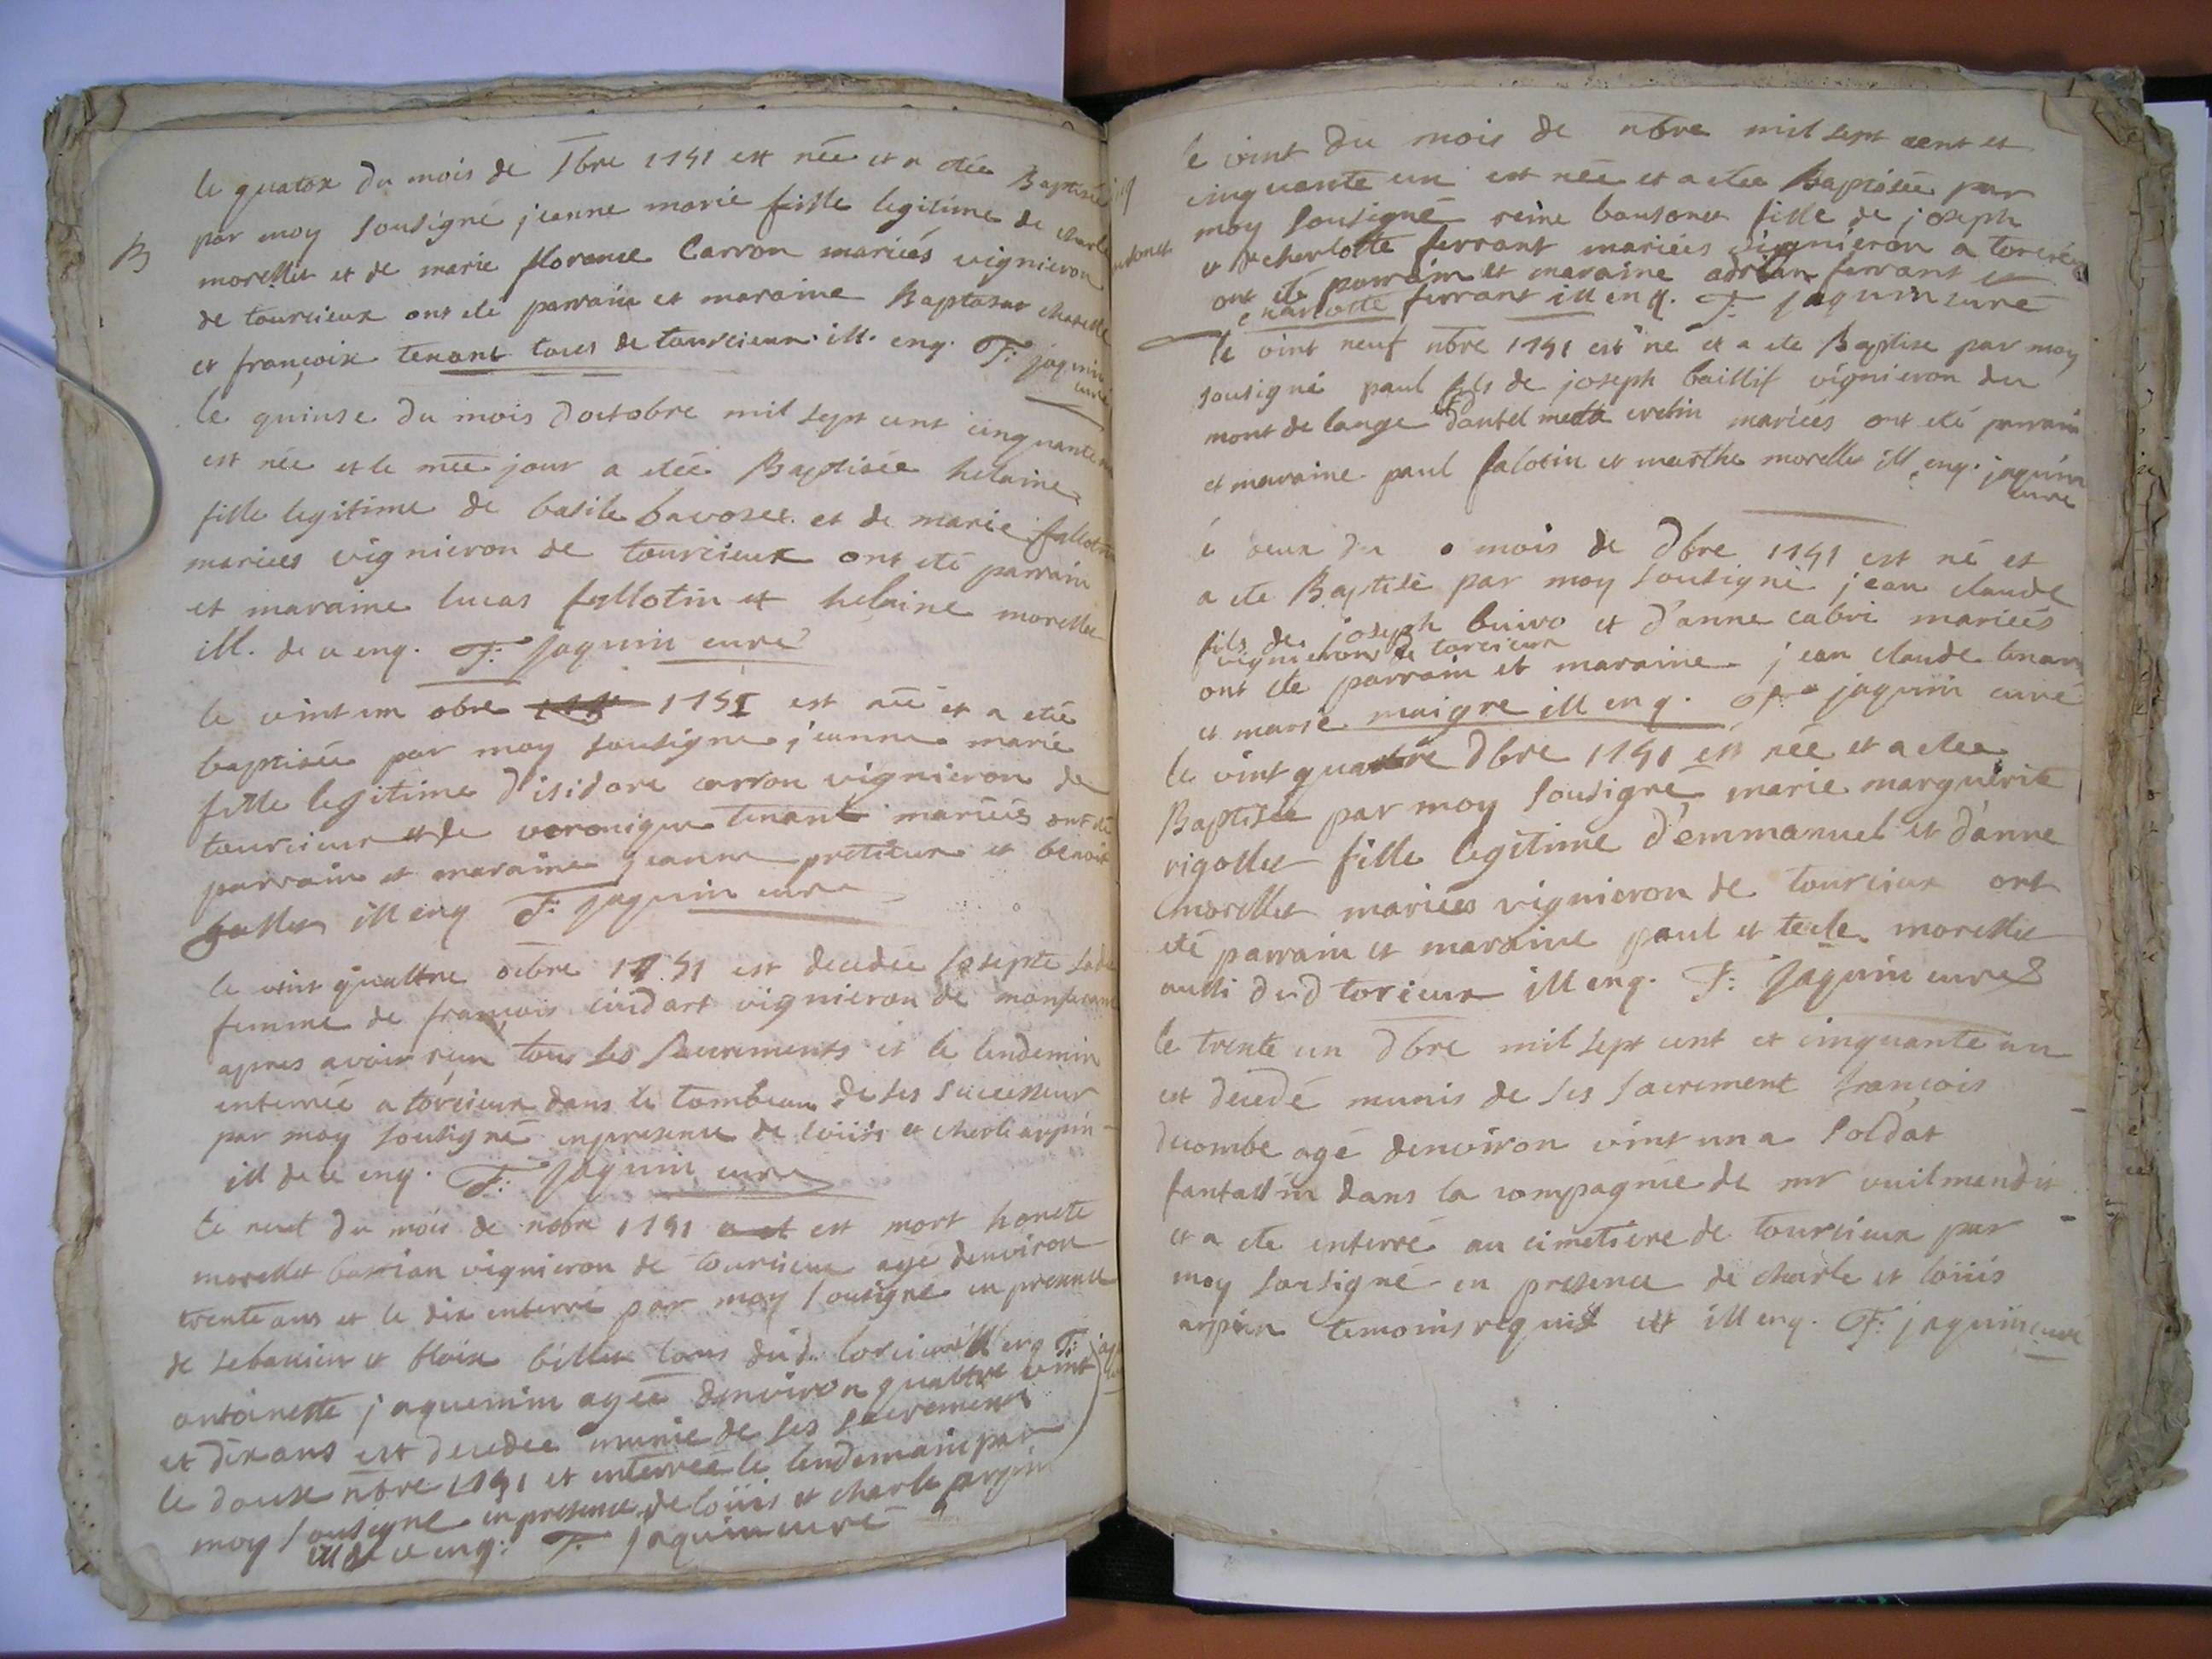 le quatorze du mois de 7bre 1751 est née et a étée Baptisée
par moy sousigné jeanne marie fille legitime de charle
B
morellet et de marie florence Carron mariés vignieron
de tourcieux ont été parrain et maraine Baptasar
et françoise tenant tous de tourcieux ill. enq. F: jaquin
curé
le quinse du mois d'octobre mil sept cent cinquante un
est née et le mée jour a étée Baptisée helaine
fille legitime de basile bavoset et de marie fallotin
mariées vignieron de tourcieux ont eté parrain
et maraine lucas fallotin et helaine morellet
ill. de ce enq. F: Jaquin curé
le vint un obre 1751 est née et a etée
baptisée par moy sousigné jeanne marie
fille legitime d'isidore carron vignieron de
tourcieux et de veronique tenant mariés ont été
parrain et maraine jeanne pretieux et benoit
gallet ill enq F: Jaquin curé
le vint quattre octbre 1751 est decedée Josepte
femme de françois cuidart vignieron de
apres avoir reçu tous les Sacrements et le lendemin
enterrée a torcieux dans le tombeau de ses Successeur
par moy sousigné en presence de loüis et charle arpin
ill de ce enq. F: Jaquin curé
le neuf du mois de nobre 1751 est mort honete
morellet bastian vignieron de tourcieux agé denviron
trente ans et le dix enterré par moy sousigné en presence
de sebastien et bloix billet tous dud. torcieux ill enq F:
antoinette jaquemin agée denviron quattre vint
et dix ans est decedée munie de ses sacrements
le douse nbre 1751 et enterrée le lendemain par
moy sousigné en presence de loüis et charle arpin
ill de ce enq: F. jaquin curé
le vint du mois de nbre mil sept cent et
cinquante un est née et a etée Baptisée par
moy sousigné reine bausonet fille de joseph
et de cherlotte ferrant mariées vignieron a torcieux
ont été parrain et maraine adrian ferrant et
charlotte ferrant ill enq. F: Jaquin curé
le vint neuf nbre 1751 est né et a ete Baptise par moy
sousigné paul fils de joseph baillif vignieron du
mont de lange et mariées ont eté parrain
et maraine paul falotin et marthe morellet ill enq. jaquin
curé
deux du mois de Dbre 1751 est né et
a ete Baptisé par moy sousigné jean claude
fils de joseph buivo et d'anne cabri mariés
vignieron de torcieux
ont ete parrain et maraine jean claude tenant
et marie maigre ill enq. F: jaquin curé
le vint quattre Dbre 1751 est née et a etee
Baptisée par moy sousigné marie marguerite
rigollet fille legitime d'emmanuel et d'anne
morellet mariées vignieron de tourcieux ont
eté parrain et maraine paul et tecle morellet
aussi dud torcieux ill enq. F: Jaquin curé
le trente un Dbre mil sept cent et cinquante un
est decedé munis de ses sacrement françois
ducombe agé denviron vint un a Soldat
fantassin dans la compagnie de mr vuilmendit
et a ete enterré au cimetiere de tourcieux par
moy sousigné en presence de charle et loüis
arpin temoins requis et ill enq. F: jaquin curé